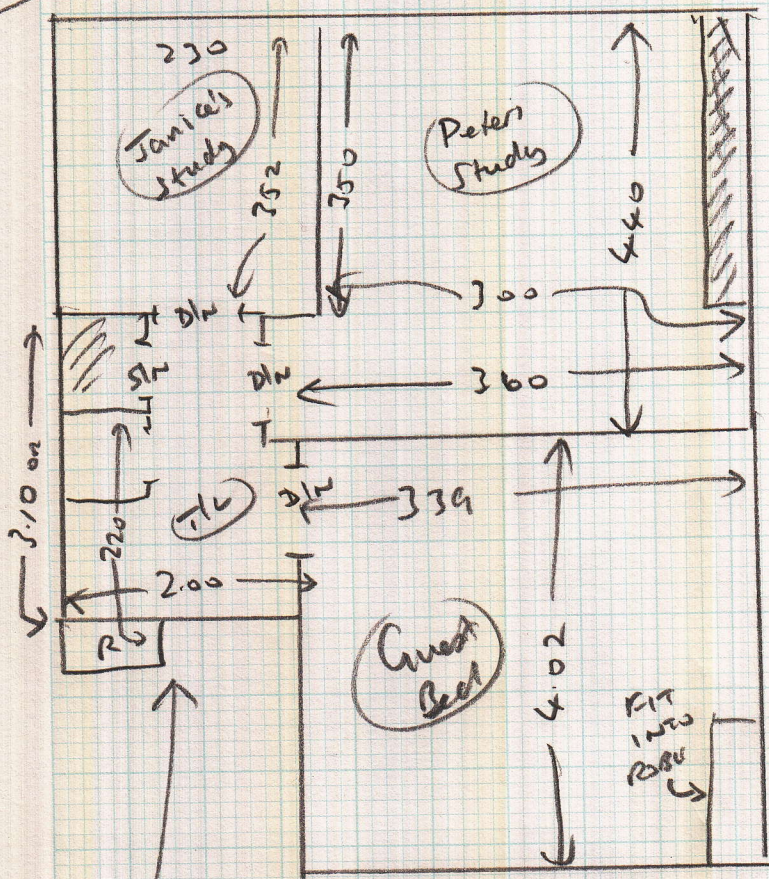 230
Janice's
study
352
350
Peters
study
440
300
D/N
S/N
D/N
360
3.10 on
220
T/L
D/N
339
2.00
R
Guest
Bed
4.02
FIT
INTO
ROBE